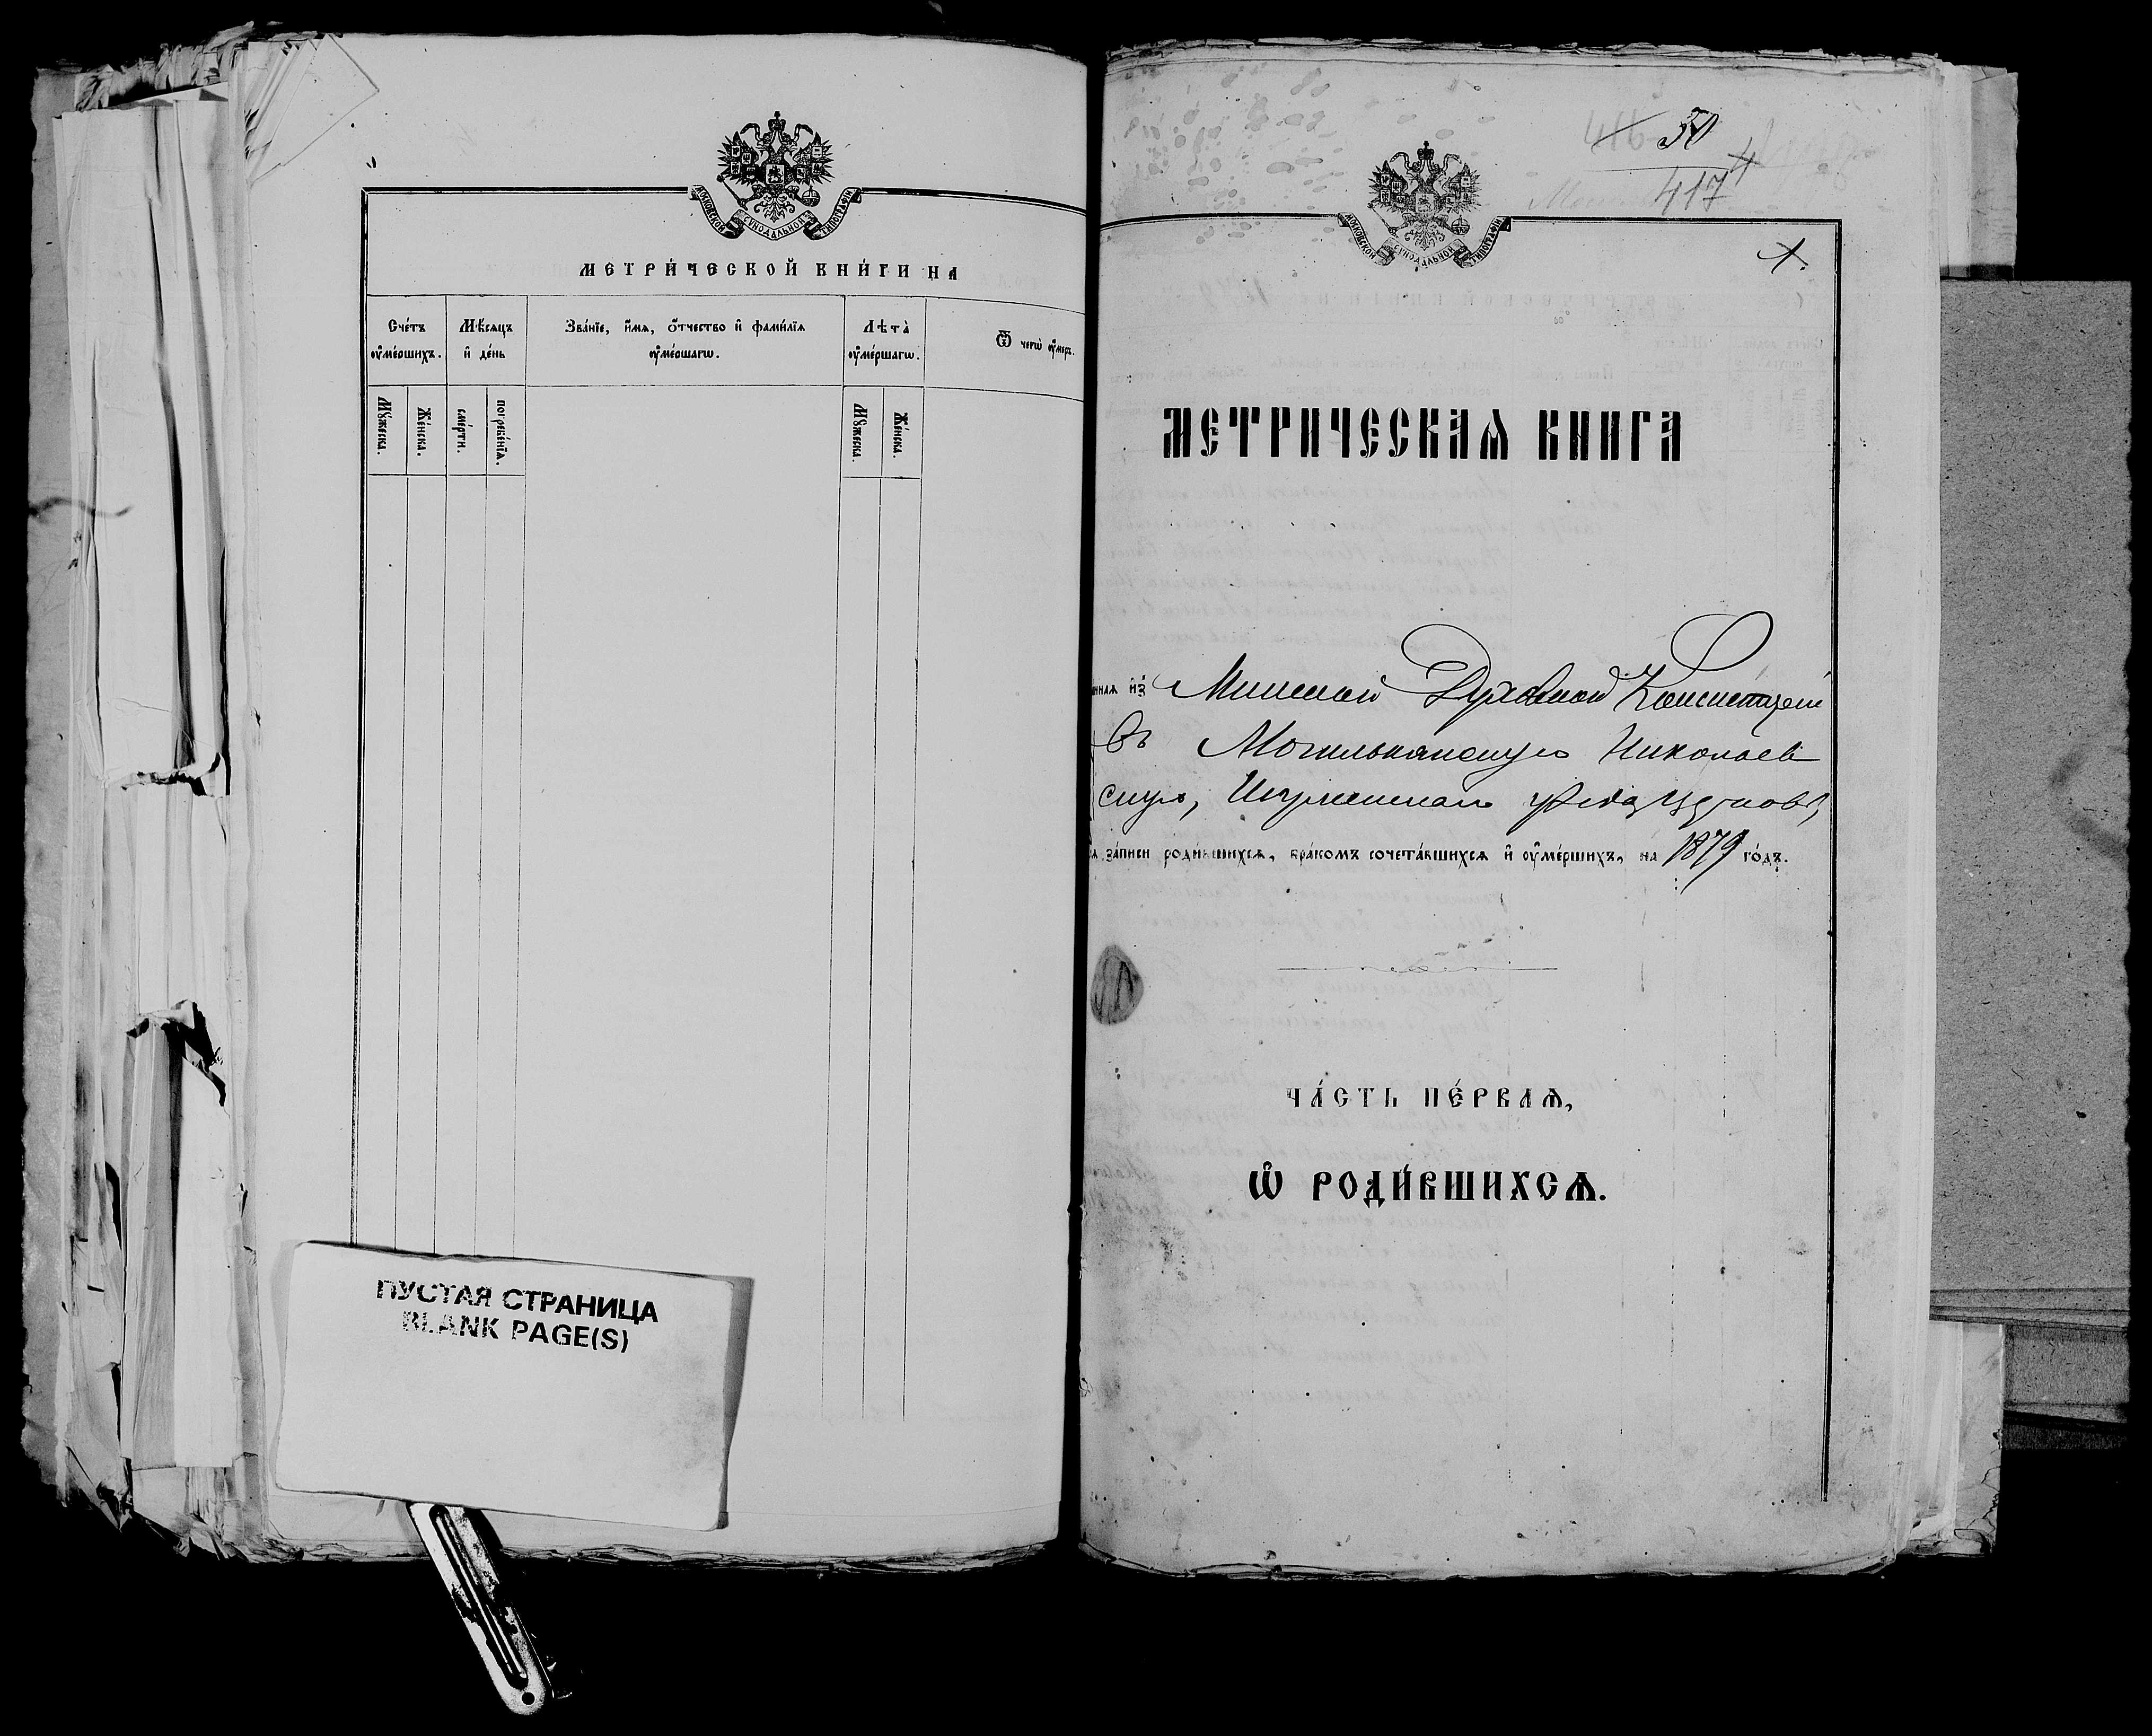 МОСКОВСКОЙ СѴНОДАЛЬНОЙ ТИПОГРАФІИ
МЕТРИ́ЧЕСКОЙ КНИ́ГИ НА
Сче́тъ ᲂу҆ме́ршихъ.
Мѣ́сяцъ и҆ де́нь
Зва́нїе, и҆́мѧ, ѻ҆́тчество и҆ фами́лїѧ ᲂу҆ме́ршагѡ.
Лѣта̀ ᲂу҆ме́ршагѡ.
Ѿ чегѡ̀ ᲂу҆́меръ.
Мꙋ́жеска.
Же́нска.
сме́рти.
погребе́нїѧ.
Мꙋ́жеска.
Же́нска.
ПУСТАЯ СТРАНИЦА
BLANK PAGE(S)
50
417
МОСКОВСКОЙ СѴНОДАЛЬНОЙ ТИПОГРАФІИ
МЕТРИЧЕСКАѦ КНИГА
нная и҆з̾ Минской Духовной Консисторіи
въ Могильнянскую Николаев
скую, Игуменскаго уѣзда церковь,
за́писи роди́вшихсѧ, бра́комъ сочета́вшихсѧ и҆ ᲂу҆ме́ршихъ, на 1879 го́дъ.
ЧА́СТЬ ПЕ́РВАѦ,
Ѡ҆ РОДИ́ВШИХСѦ.